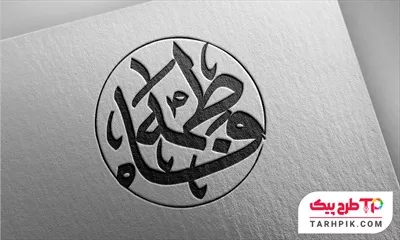 فاطمه
طرح پیک TP
TARHPIK.COM